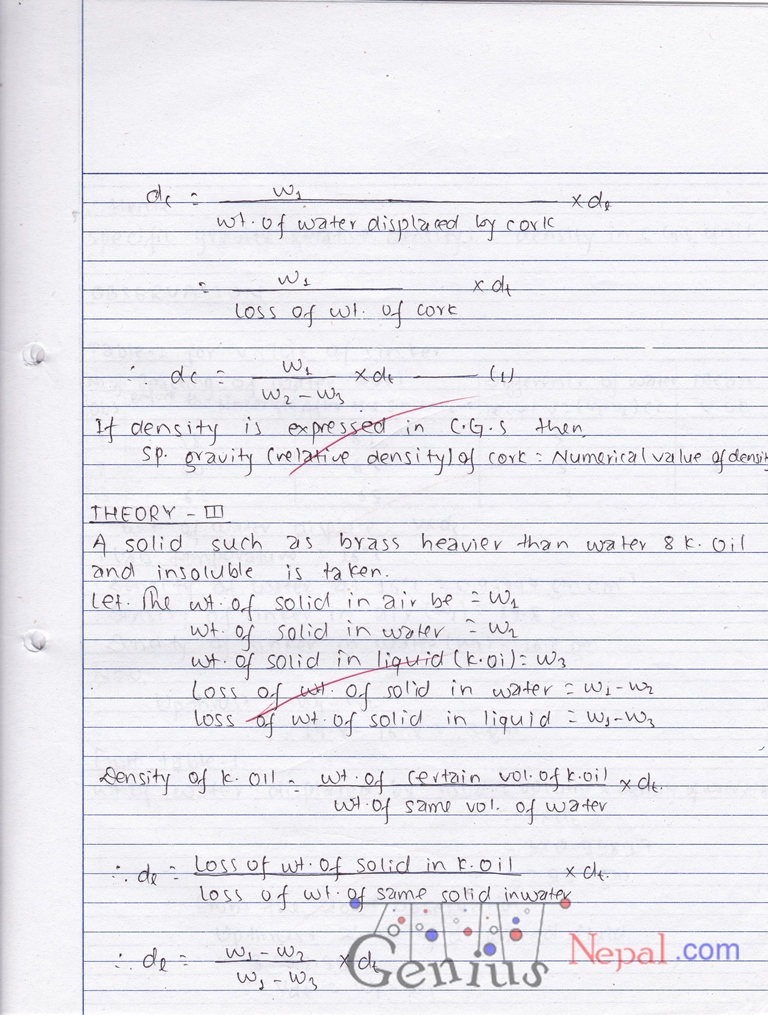 dc = w1 / wt. of water displaced by cork × dt
= w1 / loss of wt. of cork × dt
∴ dc = w1 / w2 – w3 × dt —— (1)
If density is expressed in C.G.S then,
Sp. gravity (relative density) of cork = Numerical value of densit
THEORY - III
A solid such as brass heavier than water & K. oil
and insoluble is taken.
Let. The wt. of solid in air be = w1
wt. of solid in water = w2
wt. of solid in liquid (K.oi) = w3
Loss of wt. of solid in water = w1-w2
loss of wt. of solid in liquid = w1-w3
Density of K. Oil = wt. of certain vol. of K.oil / wt. of same vol. of water × dt.
∴ dl = Loss of wt. of solid in K.oil / Loss of wt. of same solid inwater × dt.
∴ dl = w1 - w2 / w1 - w3 × dt
Genius Nepal .com